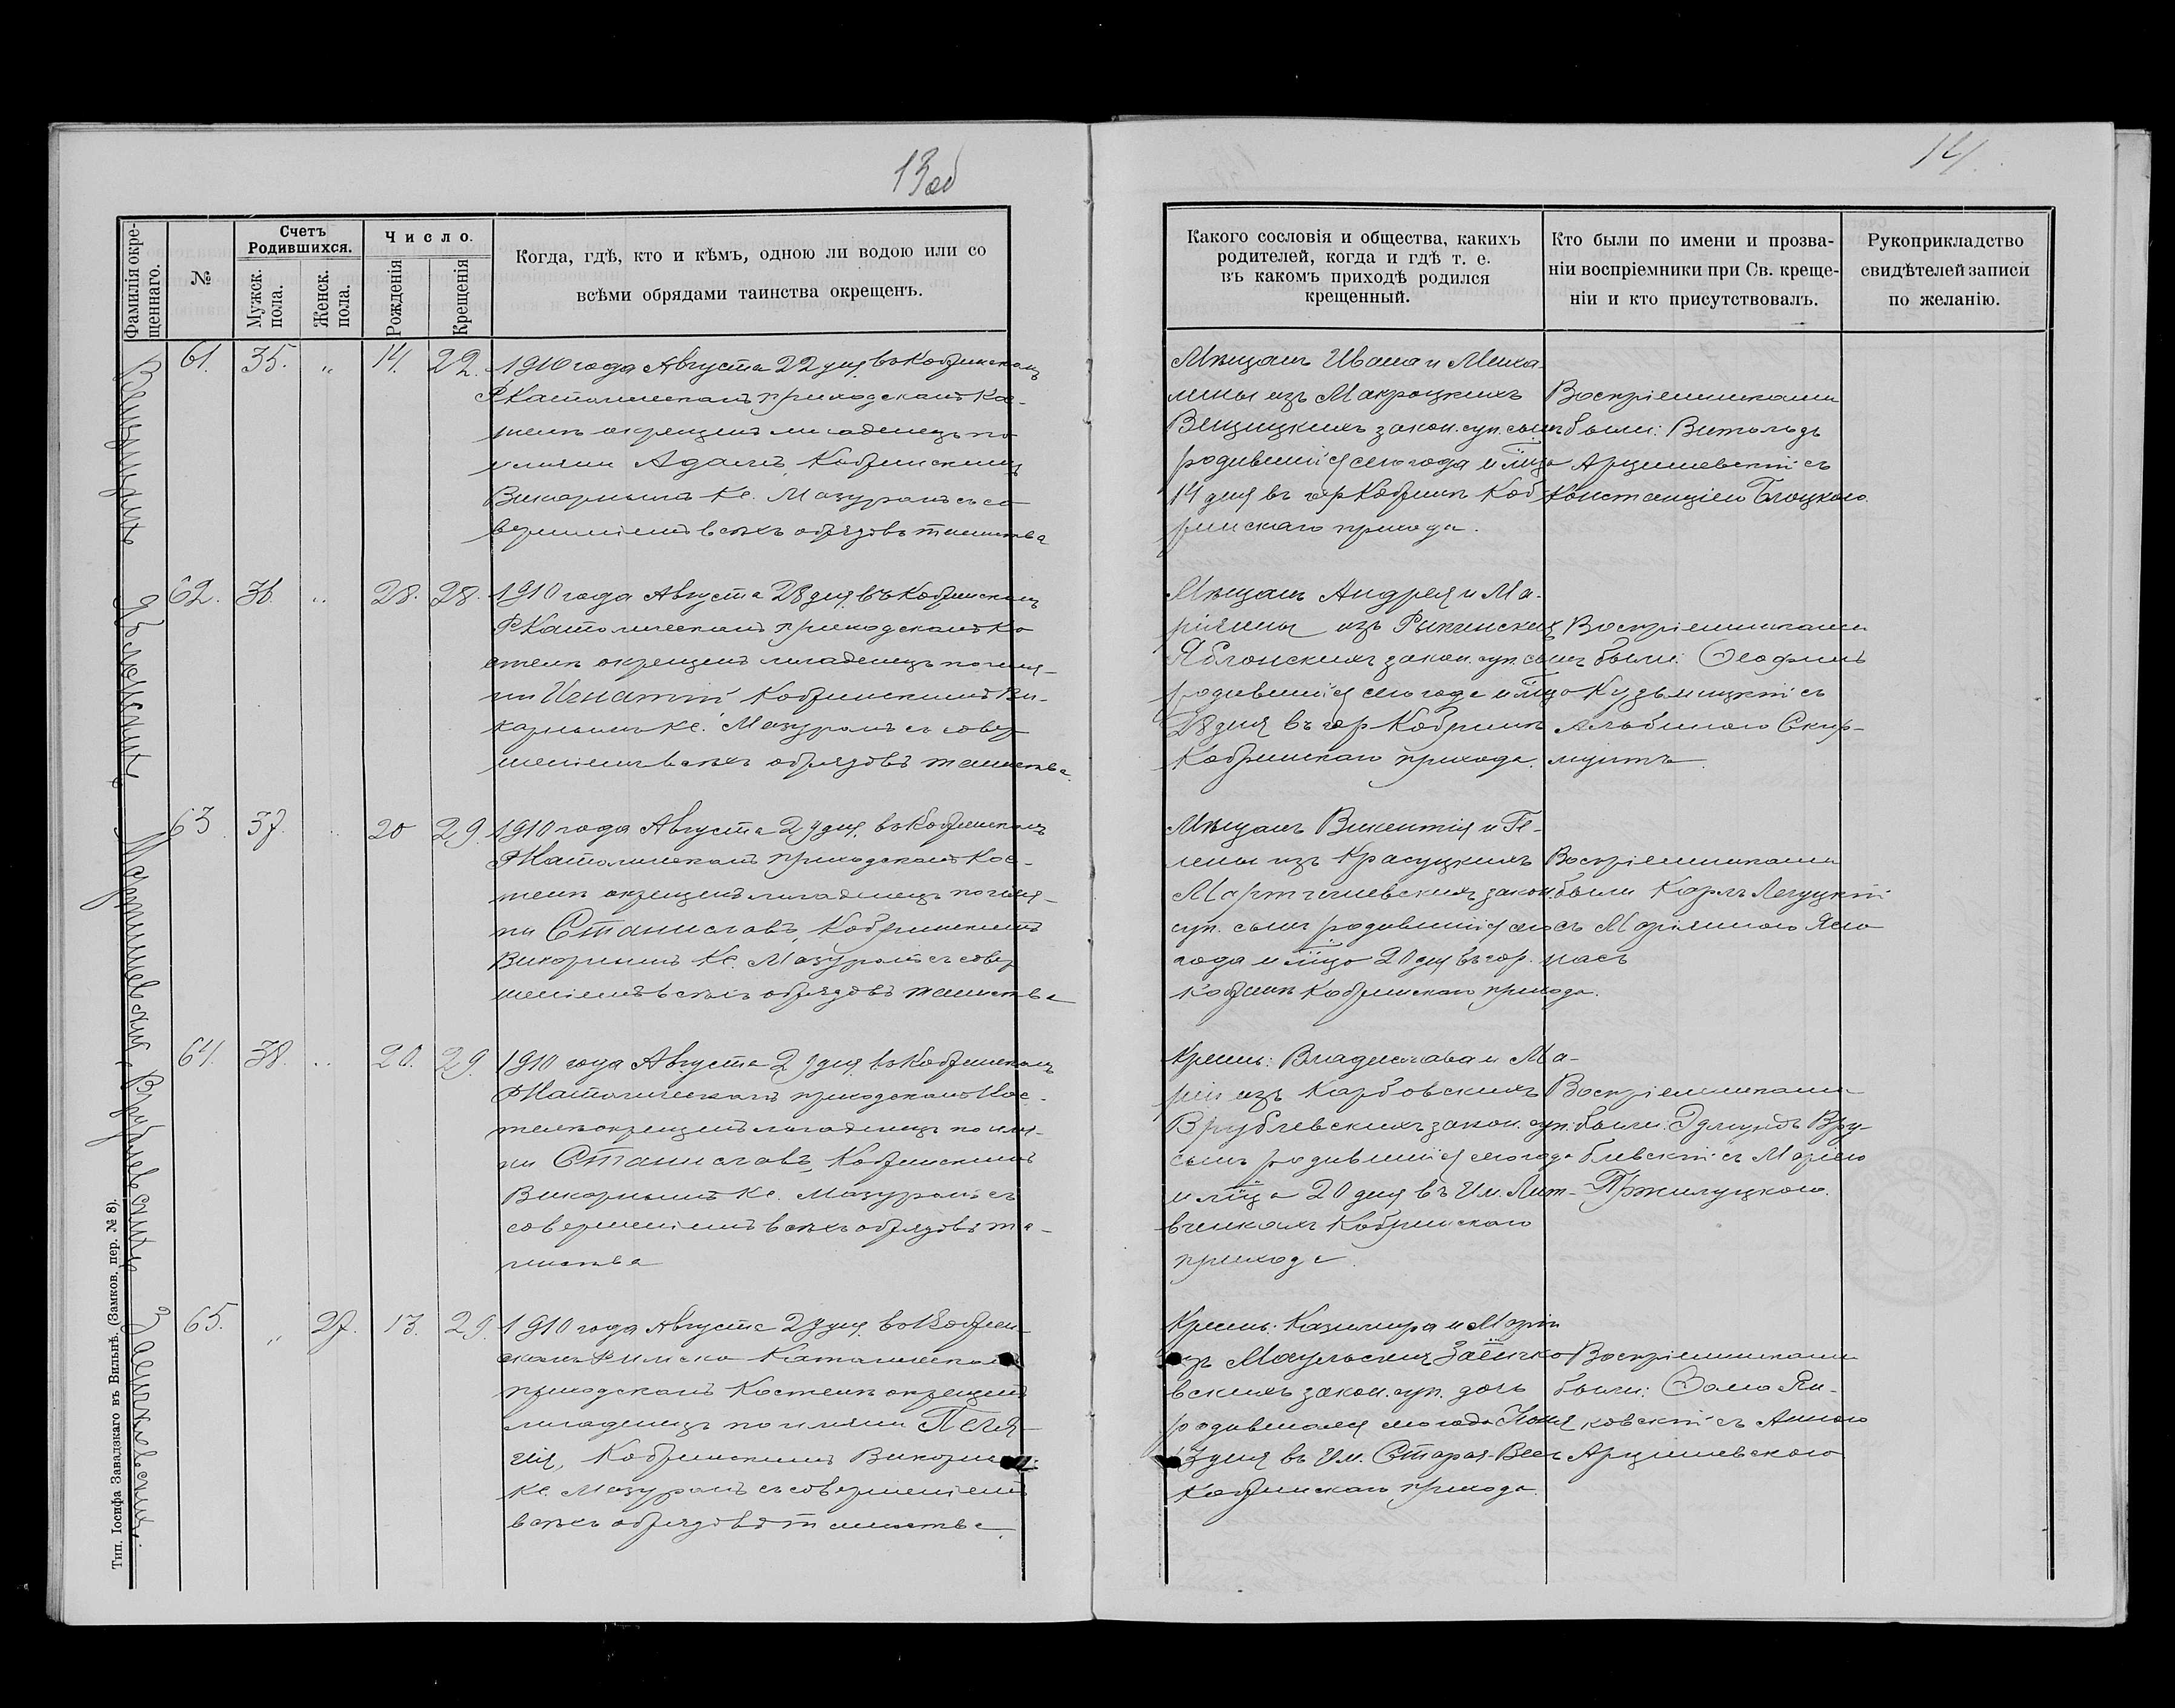 13об
14
Фамилія окрещеннаго.
№
Счетъ Родившихся.
Мужск. пола.
Женск. пола.
Число.
Рожденія
Крещенія
Когда, гдѣ, кто и кѣмъ, одною ли водою или со
всѣми обрядами таинства окрещенъ.
Какого сословія и общества, какихъ
родителей, когда и гдѣ т. е.
въ какомъ приходѣ родился
крещенный.
Кто были по имени и прозва-
ніи воспріемники при Св. креще-
ніи и кто присутствовалъ.
Рукоприкладство
свидѣтелей записи
по желанію.
61. 35. „ 14. 22.
1910 года Августа 22 дня въ Кобринскомъ
Р Католическомъ приходскомъ Ко-
стелѣ окрещенъ младенецъ по
имени Адамъ, Кобринскимъ
Викарнымъ Кс. Мазуромъ съ со
вершеніемъ всѣхъ обрядовъ таинства
Мѣщанъ Ивана и Миха-
лины изъ Макроцкихъ
закон. суп. сынъ
родившійся сего года и м-ца
14 дня въ гор Кобринѣ Коб
ринскаго прихода.
Воспріемниками
были: Витольдъ
Арцишевскій съ
Констанціею Блоцкою.
Яблонскихъ
62. 36. „ 28. 28.
1910 года Августа 28 дня въ Кобринскомъ
Р Католическомъ приходскомъ Ко
стелѣ окрещенъ младенецъ по име-
ни Игнатій Кобринскимъ Ви-
карнымъ Кс. Мазуромъ съ совер
шеніемъ всѣхъ обрядовъ таинства.
Мѣщанъ Андрея и Ма-
ріянны изъ
Яблонскихъ закон. суп. сынъ
родившійся сего года и м-ца
28 дня въ гор Кобринѣ
Кобринскаго прихода.
Воспріемниками
были: Ѳеофилъ
Кузьмицкій съ
Альбиною Скир-
мунтъ.
63. 37. „ 20 29.
1910 года Августа 29 дня въ Кобринскомъ
Р Католическомъ приходскомъ Кос-
телѣ окрещенъ младенецъ по име-
ни Станиславъ, Кобринскимъ
Викарнымъ Кс. Мазуромъ съ совер
шеніемъ всѣхъ обрядовъ таинства
Мѣщанъ Викентія и Ге-
лены изъ Красуцкихъ
закон.
суп. сынъ родившійся сего
года и м-ца 20 дня въ гор.
Кобринѣ Кобринскаго прихода.
Воспріемниками
были Карлъ
съ Маріянною
Врублевскихъ
64. 38. „ 20. 29.
1910 года Августа 29 дня въ Кобринскомъ
Р Католическомъ приходскомъ Кос-
телѣ окрещенъ младенецъ по име-
ни Станиславъ, Кобринскимъ
Викарнымъ Кс. Мазуромъ съ
совершеніемъ всѣхъ обрядовъ та-
инства
Крестьян: Владислава и Ма-
ріи изъ Карбовскихъ
Врублевскихъ закон. суп.
сынъ родившійся сего года
и м-ца 20 дня въ Им.
Кобринскаго
прихода.
Воспріемниками
были: Эдмундъ Вру-
блевскій съ Маріею
Пржилуцкою.
65. „ 27. 13. 29.
1910 года Августа 29 дня въ Кобрин-
скомъ Римско Католическомъ
приходскомъ Костелѣ окрещенъ
младенецъ по имени Пеля-
гія, Кобринскимъ Викарнымъ
Кс. Мазуромъ съ совершеніемъ
всѣхъ обрядовъ таинства.
Казимира и Маріи
закон. суп. дочь
родившаяся сего года Іюня
13 дня въ Им. Старая-Весь
Кобринскаго прихода.
Воспріемниками
были: Ѳома Ян-
ковскій съ Анною
Арцишевскою.
Тип. Іосифа Завадзкаго въ Вильнѣ. (Замков. пер. № 8).